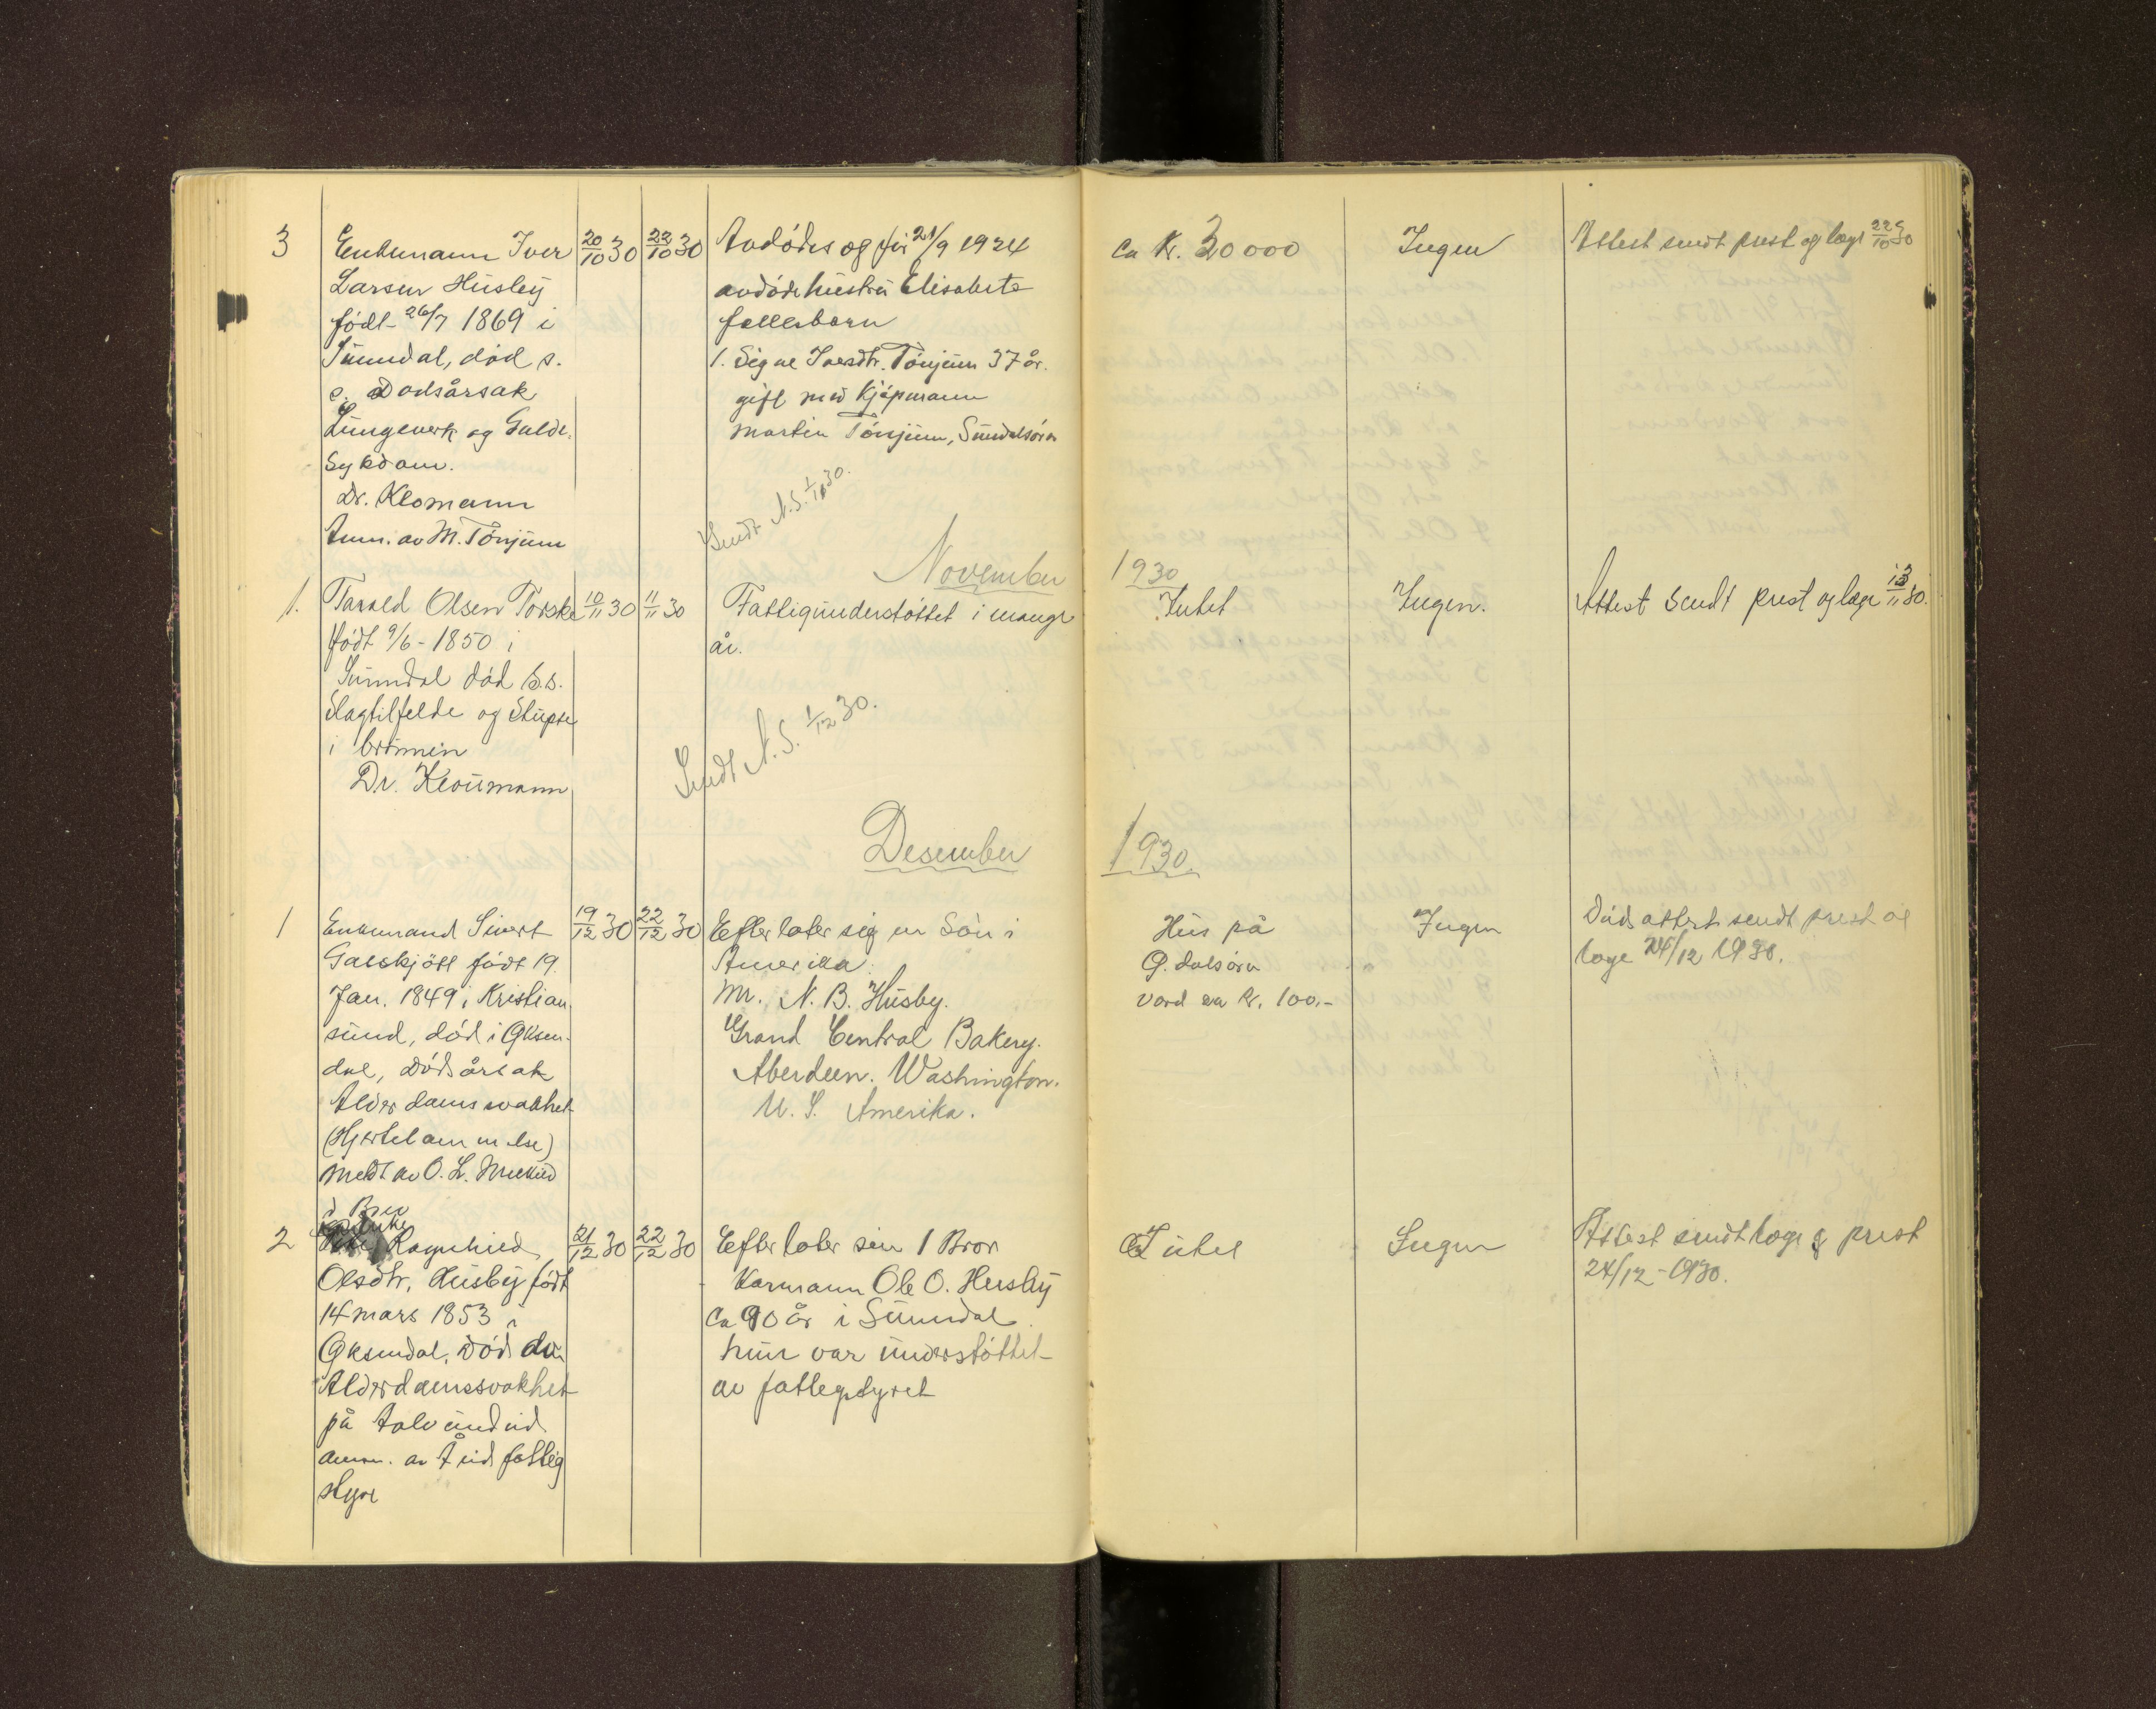 3
Enkemann Iver
Larsen Husby
født 26/7 1869 i
Sunndal, død s.
s. Dødsårsak
Lungeverk og Galde.
Sykdom.
Dr. Klomann
Anm. av M. Tönjum
20/10 30
22/10 30
Avdödes og för 21/9 1924
avdöde hustru Elisabete
fellesbarn
1. Signe Iversdtr. Tönjum 37 år.
gift med Kjöpmann
Martin Tönjum, Sundalsöra
Sendt N.S. 1/11 30.
ca Kr. 30000
Ingen
Attest sendt prest og læge 22/10 30
November 1930
1.
Tarald Olsen Torske
födt 9/6 - 1850 i
Sunndal död s.s.
Slagtilfelde og Stupte
i brönnen
Dr. Kloumann
10/11 30
11/11 30
Fattigunderstöttet i mange
år.
Sendt N.S. 1/12 30.
Intet
Ingen.
Attest sendt prest og læge 13/11 30.
Desember 1930.
1
Enkemand Sivert
Galskjött födt 19.
Jan. 1849 i Kristian
sund, död i Öksen-
dal, Dödsårsak
Alderdomssvakhet
(Hjertelammelse)
Meldt av O. L.
i Brev
19/12 30
22/12 30
Efterlater sig en Sön i
Amerika.
Mr. N. B. Husby.
Grand Central Bakery.
Aberdeen. Washington.
U. S. Amerika.
Hus på
Ö. dalsöra
verd ca kr. 100.-
Ingen
Dödsattest sendt prest og
læge 24/12 1930.
2
Ragnhild
Olsdtr. Husby födt
14 mars 1853 i
Öksendal. Död den
Alderdomssvakhet
på Ålvundeid
anm. av Åeid fattig
styre
21/12 30
22/12 30
Efterlater sin 1 Bror
Kårmann Ole O. Husby
ca 90 år i Sunndal.
hun var understöttet
av fattigstyret
Intet
Ingen
Attest sendt læge og prest
24/12 - 1930.